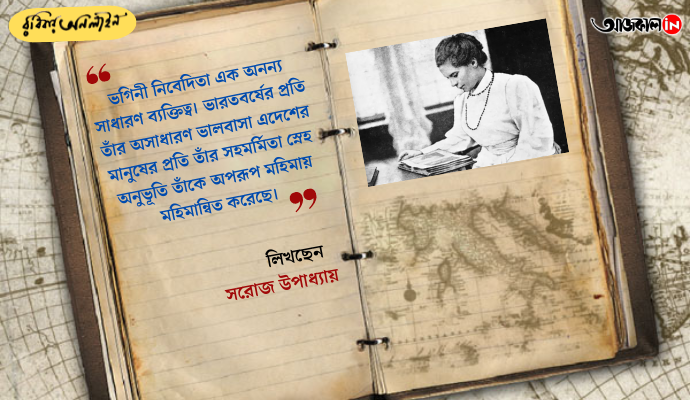 রবিবার অনলাইন
আজকাল in
“
ভগিনী নিবেদিতা এক অনন্য
সাধারণ ব্যক্তিত্ব। ভারতবর্ষের প্রতি
তাঁর অসাধারণ ভালবাসা এদেশের
মানুষের প্রতি তাঁর সহমর্মিতা স্নেহ
অনুভূতি তাঁকে অপরূপ মহিমায়
মহিমান্বিত করেছে।
”
লিখছেন
সরোজ উপাধ্যায়